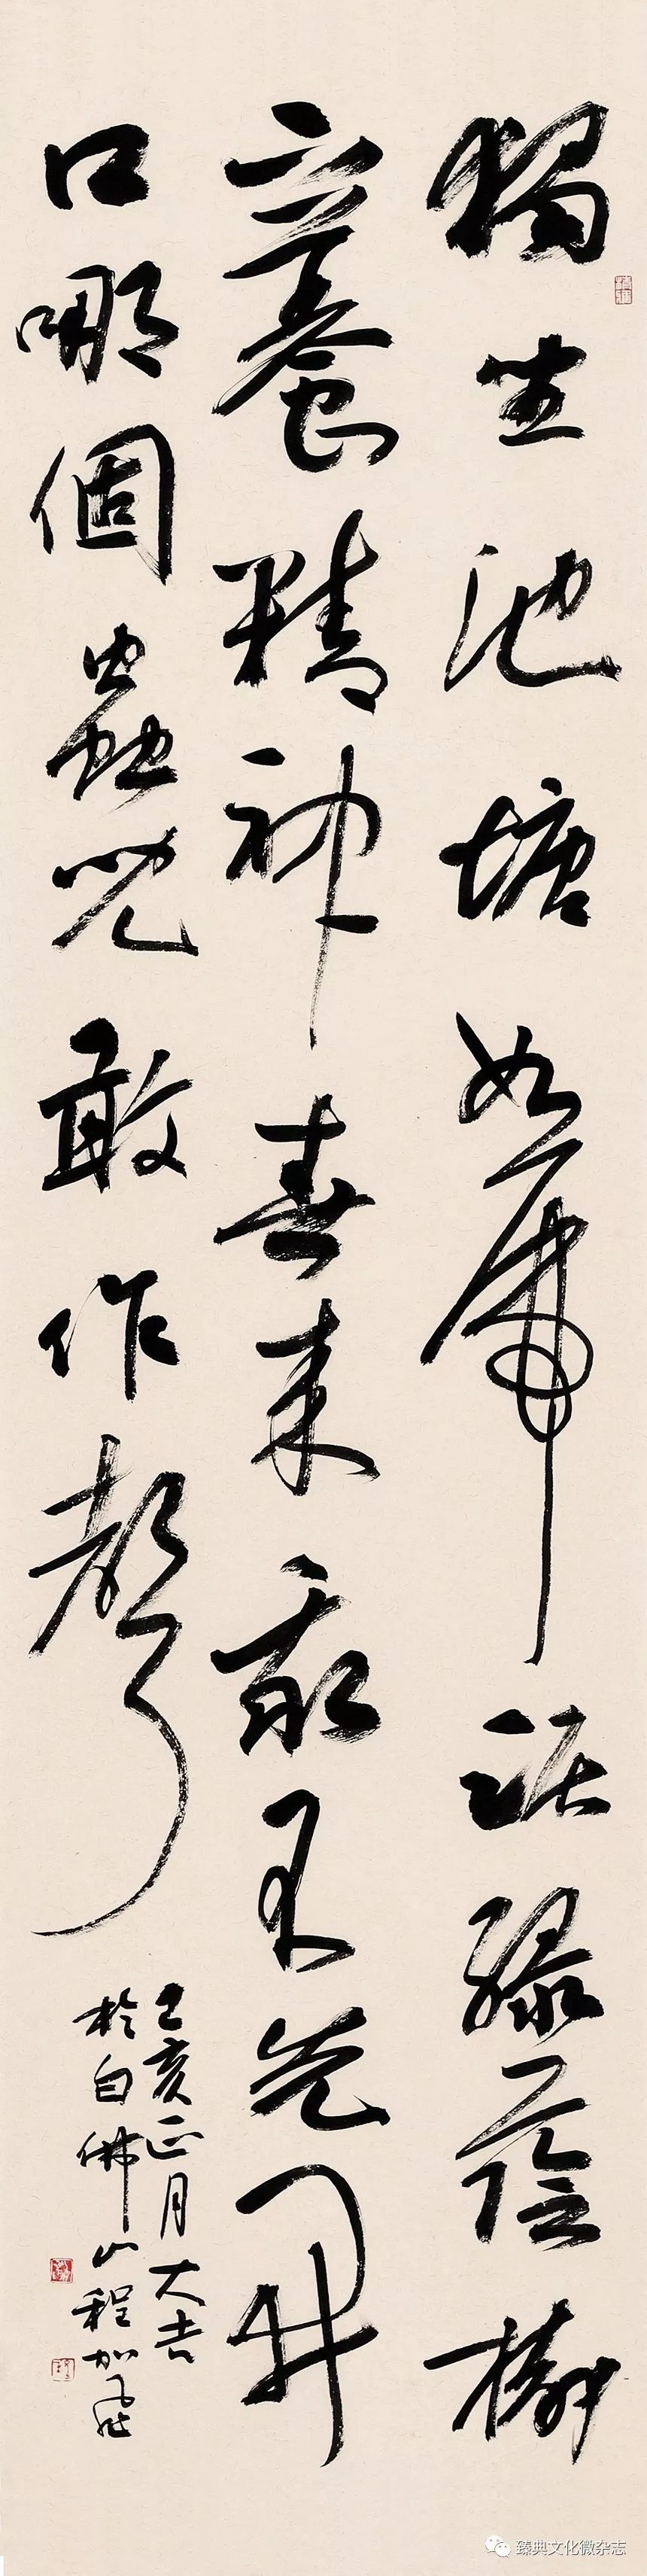 獨坐池塘如虎踞綠蔭樹
下養精神春來我不先開
口哪個蟲兒敢作聲
己亥正月大吉
於白佛山程加飛
臻典文化微杂志